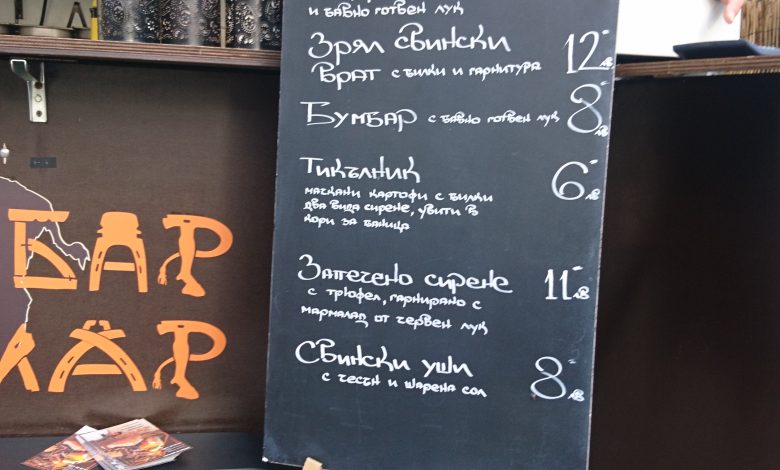 и бавно готвен лук
Зрял свински 12лв
врат с билки и гарнитура
Бумбар с бавно готвен лук 8лв
Тикълник 6лв
мачкани картофи с билки
два вида сирене, увити в
кори за баница
Запечено сирене 11лв
с трюфел, гарнирано с
мармалад от червен лук
Свински уши 8лв
с чесън и шарена сол
БАР
ЛАР